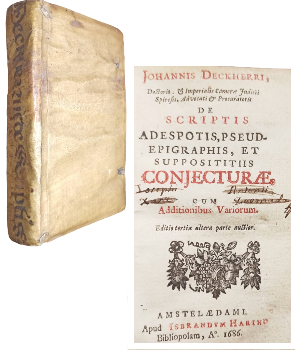 JOHANNIS DECKHERRI,
Doctoris, & Imperialis Cameræ Judicii
Spirensis, Advocati & Procuratoris
DE
SCRIPTIS
ADESPOTIS, PSEUD-
EPIGRAPHIS, ET
SUPPOSITITIIS
CONJECTURÆ,
CUM
Additionibus Variorum.
Editio tertia altera parte auctior.
AMSTELÆDAMI.
Apud ISBRANDUM HARING
Bibliopolam, Aº. 1686.